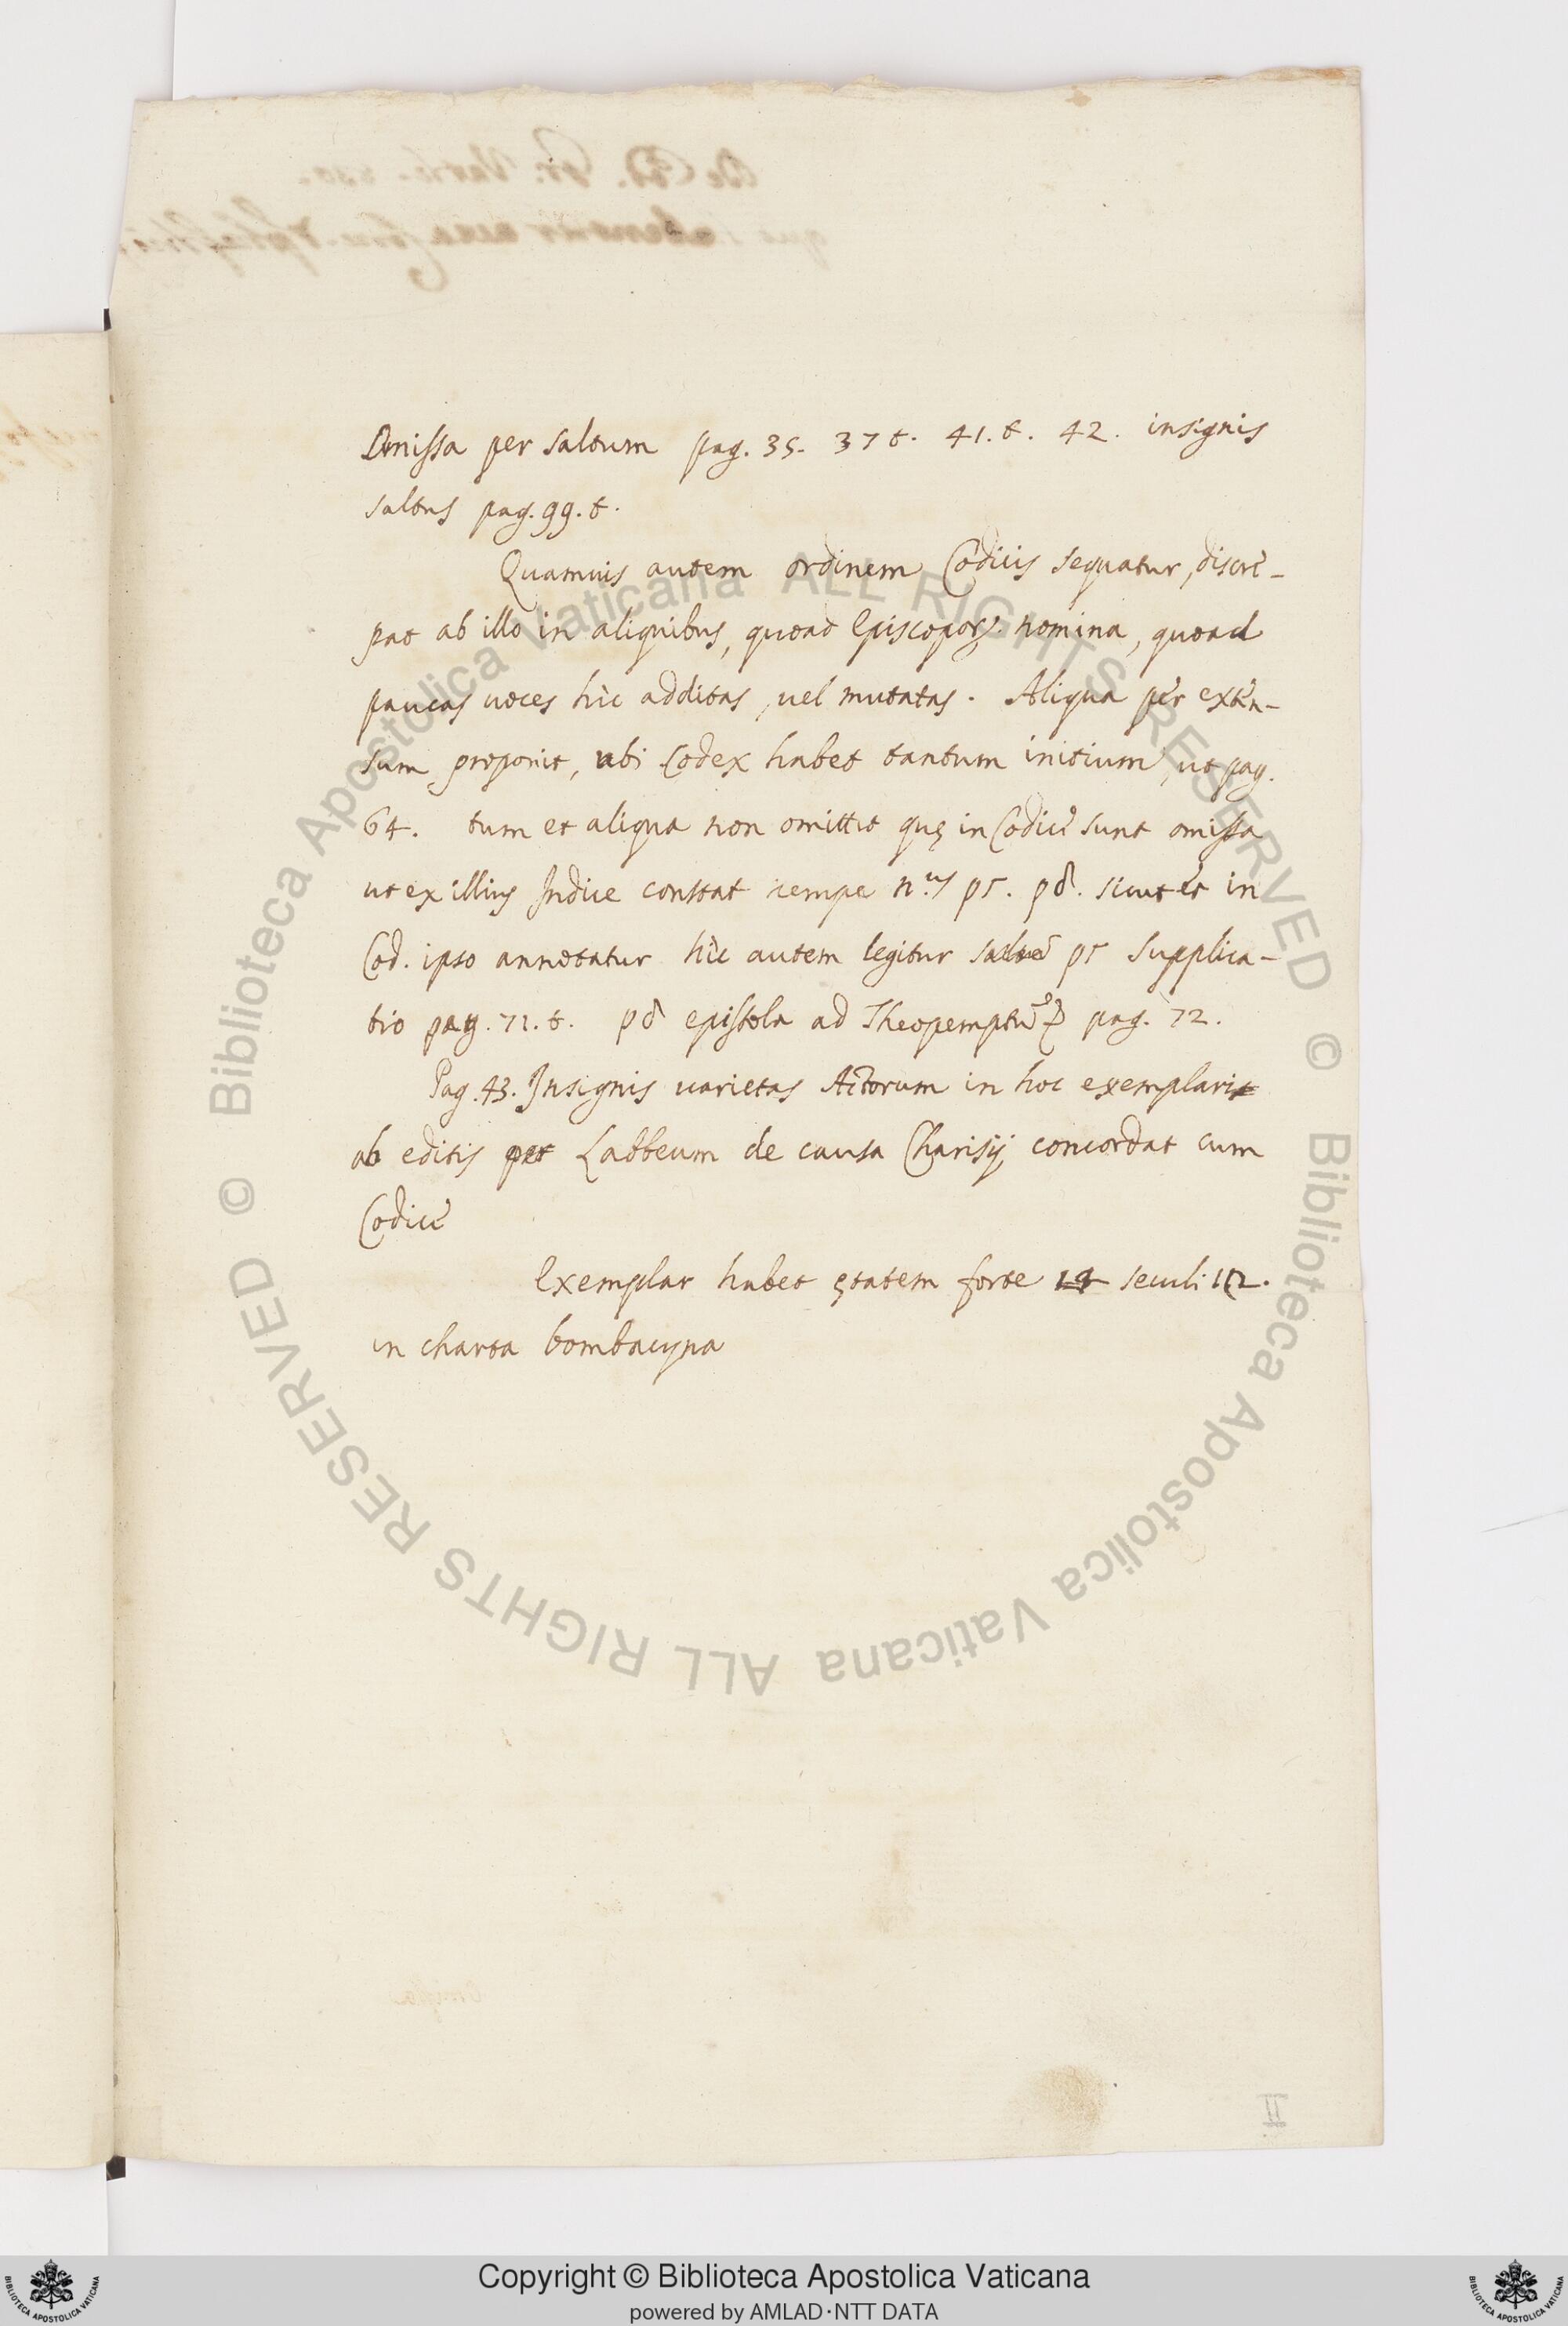 Omissa per saltum pag. 35. 37 t. 41. t. 42. insignis
saltus pag. 99. t.
Quamuis autem ordinem Codicis sequatur, discre-
pat ab illo in aliquibus, quoad Episcopor. nomina, quoad
paucas uoces hic additas, uel mutatas. Aliqua per exten-
sum proponit, ubi Codex habet tantum initium, ut pag.
64. tum et aliqua non omittit quę in Codice sunt omissa
ut ex illius Indice constat nempe n.us ρϛ. ρδ. sicut et in
Cod. ipso annotatur hic autem legitur ρϛ supplica-
tio pag. 71. t. ρδ epistola ad Theopemptū pag. 72.
Pag. 43. Insignis uarietas Actorum in hoc exemplari
ab editis per Labbeum de causa Charisij concordat cum
Codice
Exemplar habet ętatem forte seculi 12.
in charta bombacyna
II
© Biblioteca Apostolica Vaticana ALL RIGHTS RESERVED © Biblioteca Apostolica Vaticana ALL RIGHTS RESERVED
Copyright © Biblioteca Apostolica Vaticana
powered by AMLAD·NTT DATA
BIBLIOTECA APOSTOLICA VATICANA
BIBLIOTECA APOSTOLICA VATICANA